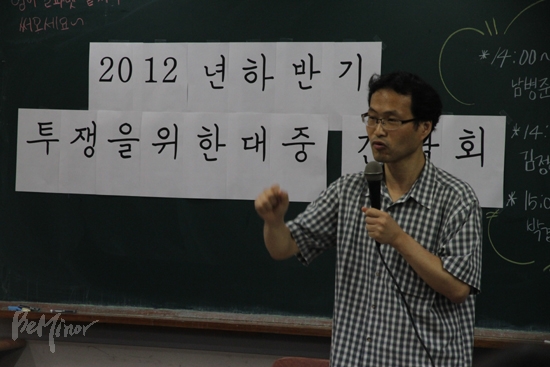 써오세요~
2012 년하반기
투쟁을위한대중 간담회
*14:00~
남병준
*14:
김정
*15:0
박
BeMinor